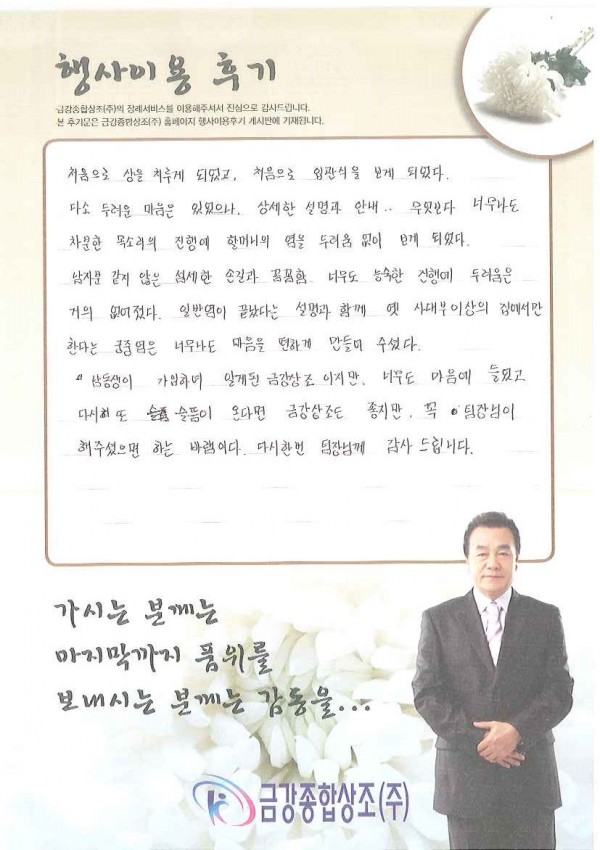 행사이용 후기
금강종합상조(주)의 장례서비스를 이용해주셔서 진심으로 감사드립니다.
본 후기문은 금강종합상조(주) 홈페이지 행사이용후기 게시판에 기재됩니다.
처음으로 상을 치루게 되었고, 처음으로 입관식을 보게 되었다.
다소 두려운 마음은 있었으나, 상세한 설명과 안내.. 무엇보다 너무나도
차분한 목소리의 진행에 할머니의 염을 두려움 없이 보게 되었다.
남자분 같지 않은 섬세한 손길과 꼼꼼함 너무도 능숙한 진행에 두려움은
거의 없어졌다. 일반염이 끝났다는 설명과 함께 옛 사대부이상의 집에서만
한다는 궁중염은 너무나도 마음을 편하게 만들어 주셨다.
삼동생이 가입하여 알게된 금강상조 이지만, 너무도 마음에 들었고
다시 또 슬픔이 온다면 금강상조는 좋지만, 꼭 팀장님이
해주셨으면 하는 바램이다. 다시한번 팀장님께 감사 드립니다.
가시는 분께는
마지막까지 품위를
보내시는 분께는 감동을...
금강종합상조(주)